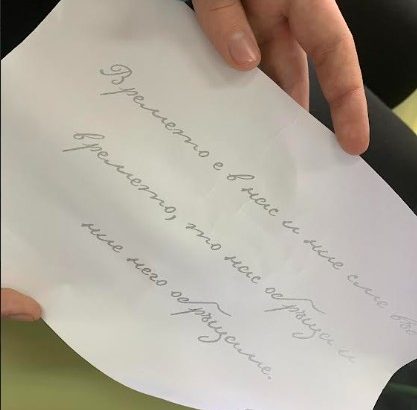 Времето е в нас и ние сме във
времето, то нас обръща и
ние него обръщаме.